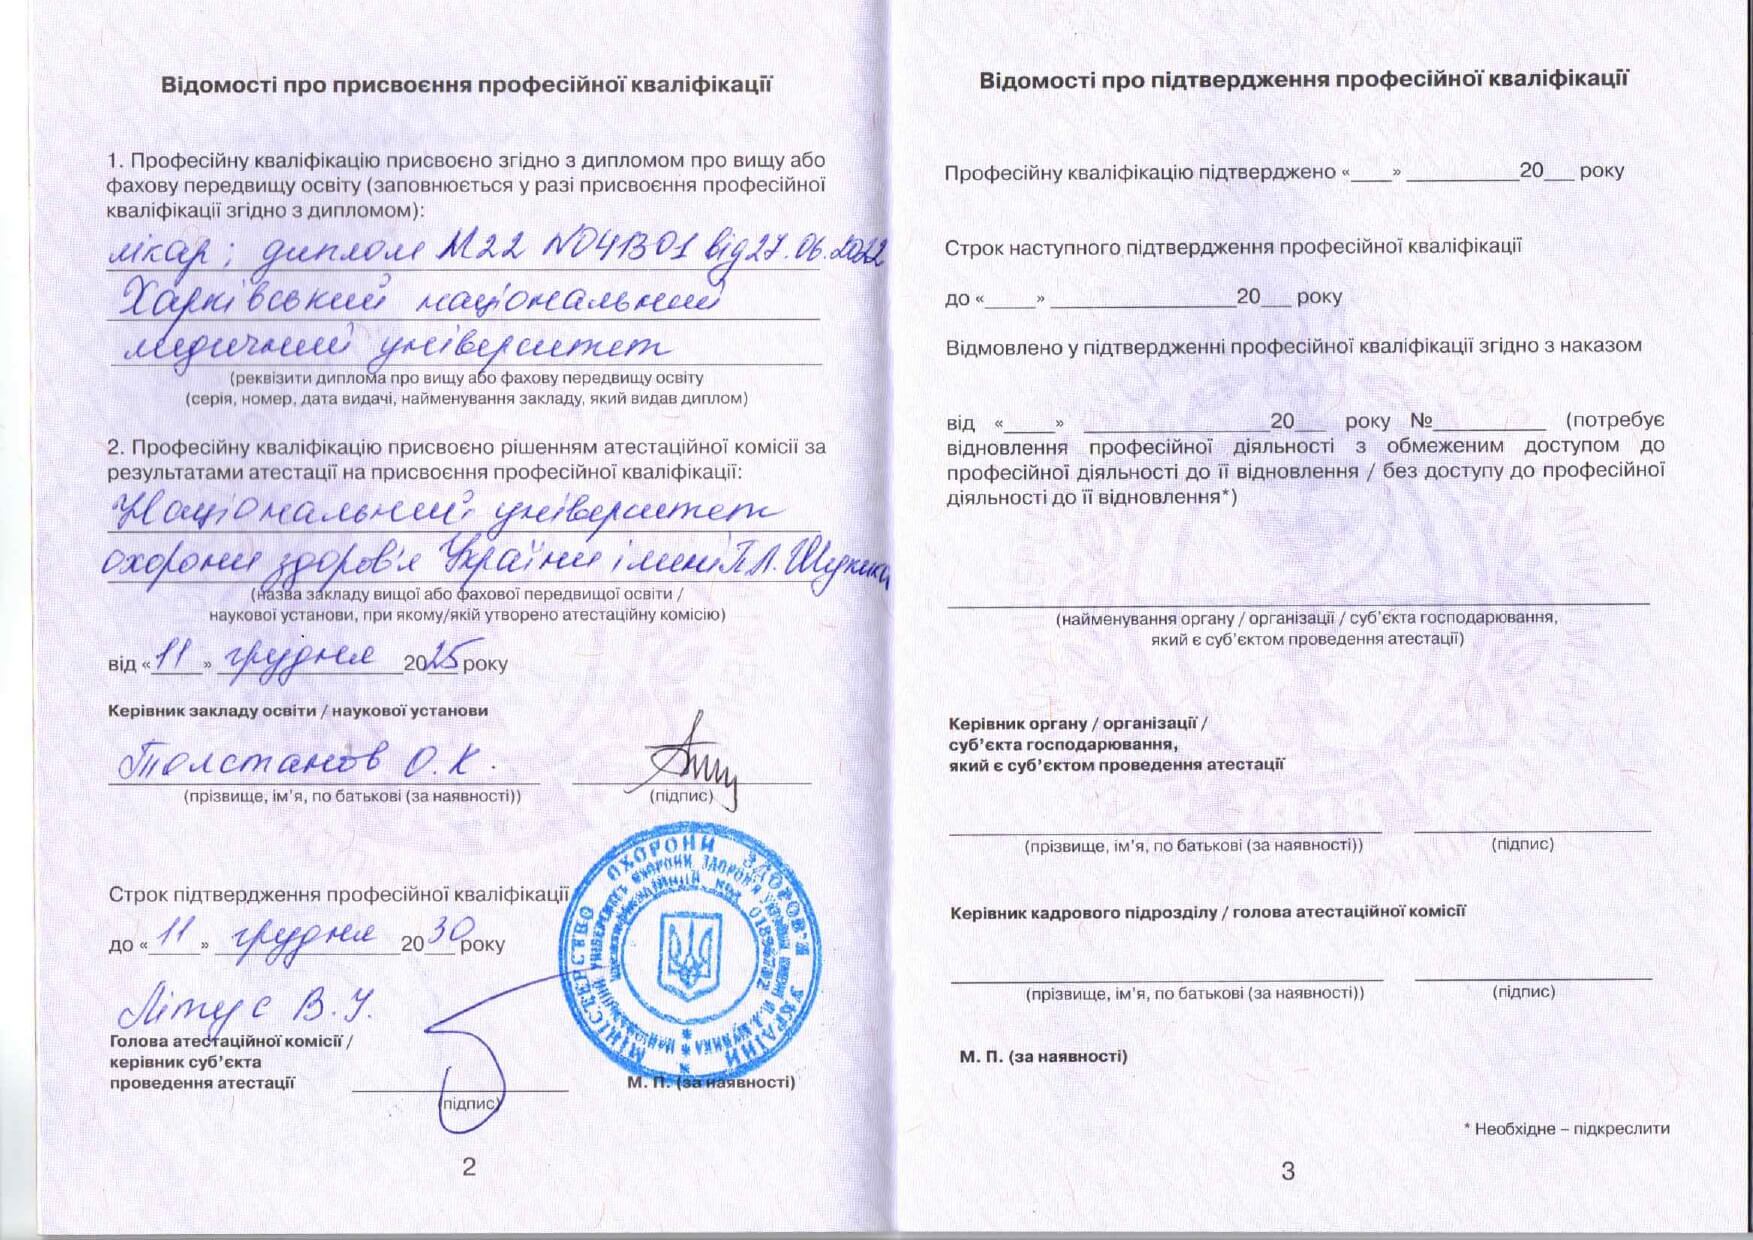 Відомості про присвоєння професійної кваліфікації
1. Професійну кваліфікацію присвоєно згідно з дипломом про вищу або
фахову передвищу освіту (заповнюється у разі присвоєння професійної
кваліфікації згідно з дипломом):
лікар; диплом М22 №041301 від 27.06.2022
Харківський національний
медичний університет
(реквізити диплома про вищу або фахову передвищу освіту
(серія, номер, дата видачі, найменування закладу, який видав диплом)
2. Професійну кваліфікацію присвоєно рішенням атестаційної комісії за
результатами атестації на присвоєння професійної кваліфікації:
Національний університет
охорони здоров'я України імені П.Л. Шупика
(назва закладу вищої або фахової передвищої освіти /
наукової установи, при якому/якій утворено атестаційну комісію)
від «11» грудня 2025 року
Керівник закладу освіти / наукової установи
Толстанов О.К.
(прізвище, ім'я, по батькові (за наявності)) (підпис)
Строк підтвердження професійної кваліфікації
до «11» грудня 2030 року
Літус В.У.
Голова атестаційної комісії /
керівник суб'єкта
проведення атестації
(підпис)
М. П. (за наявності)
МІНІСТЕРСТВО ОХОРОНИ ЗДОРОВ'Я УКРАЇНИ
2
Відомості про підтвердження професійної кваліфікації
Професійну кваліфікацію підтверджено «____» ___________20___ року
Строк наступного підтвердження професійної кваліфікації
до «_____» __________________20___ року
Відмовлено у підтвердженні професійної кваліфікації згідно з наказом
від «_____» __________________20___ року №___________ (потребує
відновлення професійної діяльності з обмеженим доступом до
професійної діяльності до її відновлення / без доступу до професійної
діяльності до її відновлення*)
(найменування органу / організації / суб'єкта господарювання,
який є суб'єктом проведення атестації)
Керівник органу / організації /
суб'єкта господарювання,
який є суб'єктом проведення атестації
(прізвище, ім'я, по батькові (за наявності)) (підпис)
Керівник кадрового підрозділу / голова атестаційної комісії
(прізвище, ім'я, по батькові (за наявності)) (підпис)
М. П. (за наявності)
* Необхідне – підкреслити
3